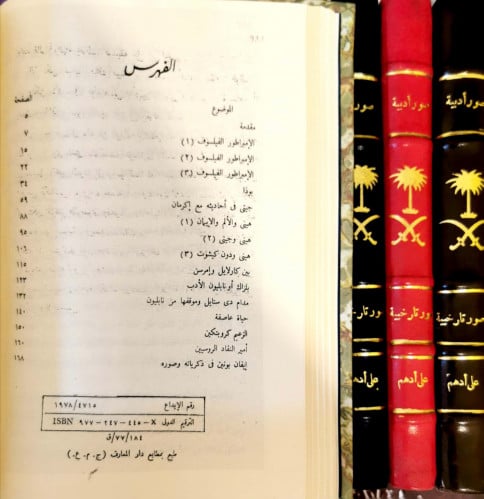 الفهرس
الموضوع الصفحة
مقدمة ٥
الإمبراطور الفيلسوف (١) ٧
الإمبراطور الفيلسوف (٢) ١٥
الإمبراطور الفيلسوف (٣) ٢٢
بوذا ٣٤
جيتى فى أحاديثه مع إكرمان ٥٩
هينى والألم والإيمان (١) ٨٨
هينى وجيتى (٢) ٩٥
هينى ودون كيشوت (٣) ١٠٦
بين كارلايل وإمرسن ١١٥
بلزاك أو نابليون الأدب ١٢٣
مدام دى ستايل وموقفها من نابليون ١٣٢
حياة عاصفة ١٤٠
الزعيم كروبتكين ١٥٠
أمير النقاد الروسيين ١٦٠
إيفان بونين فى ذكرياته وصوره ١٦٨
رقم الإيداع ١٩٧٨/٤٧١٥
الترقيم الدولى ISBN ٩٧٧-٢٤٧-٤٤٥-X
١٨٤/٧٧/ق
طبع بمطابع دار المعارف (ج . م . ع .)
صور أدبية
وصور تارخيية
على أدهم
صور أدبية
وصور تارخيية
على أدهم
صور أدبية
وصور تارخيية
على أدهم